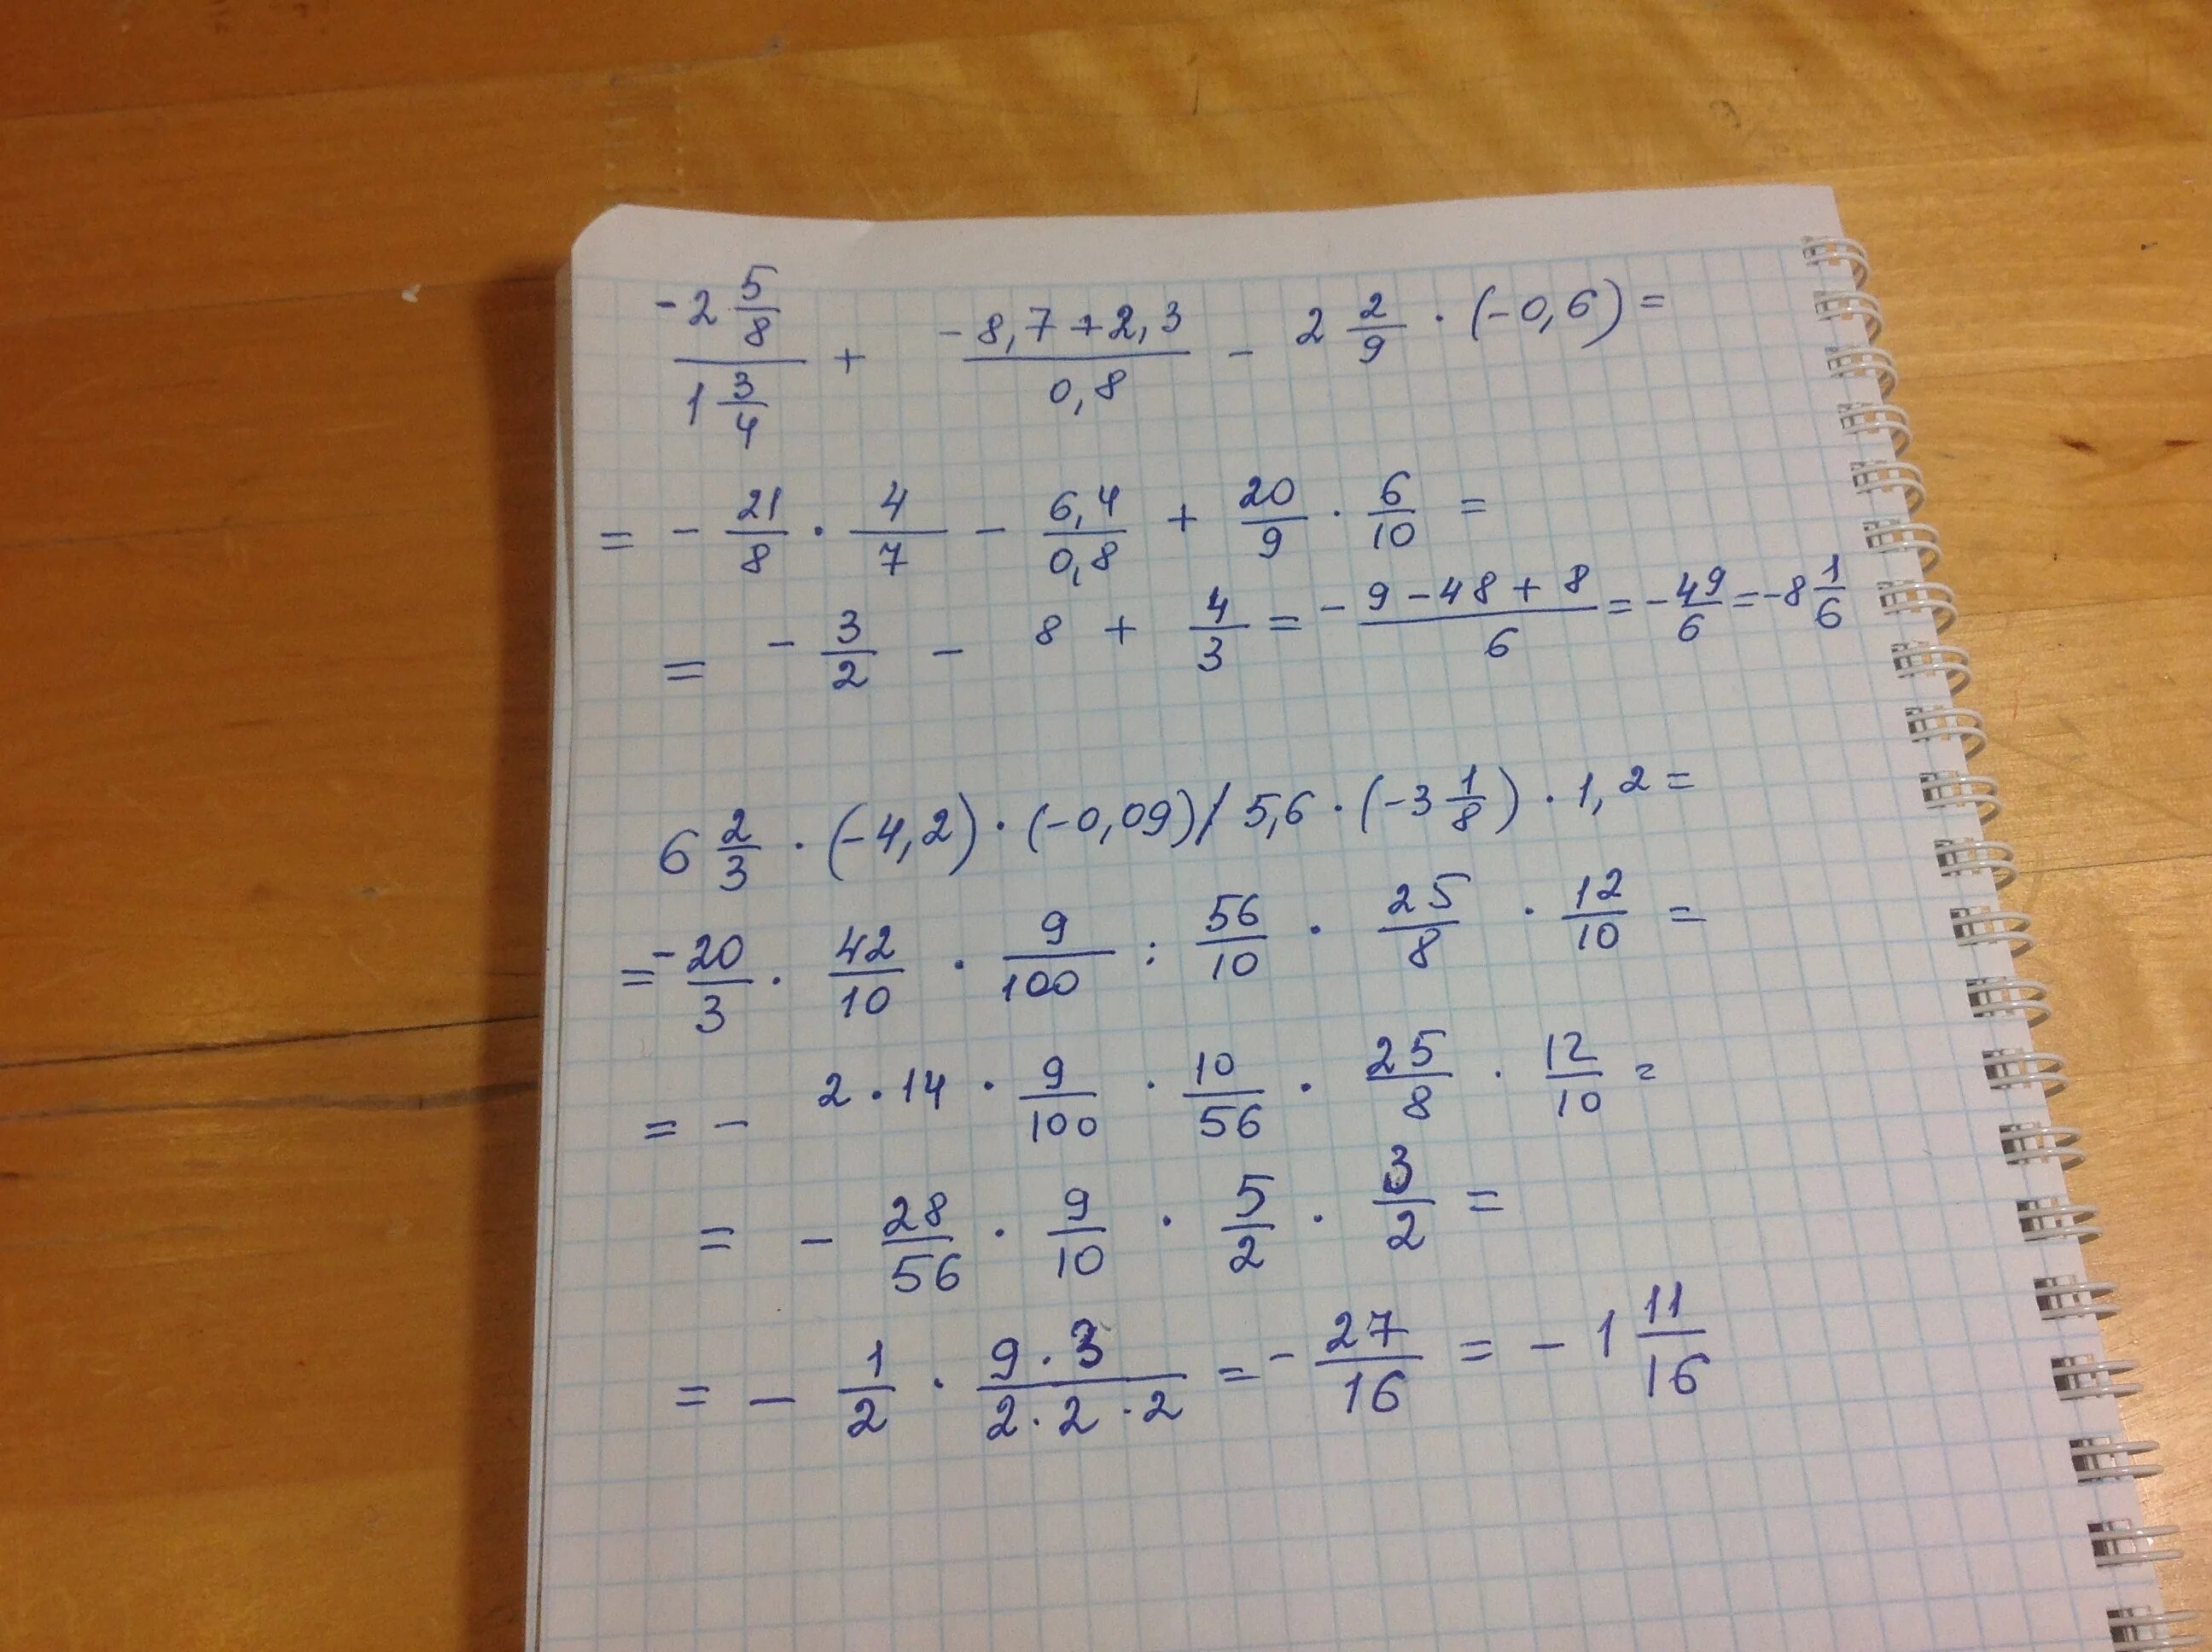 -2 5/8 / 1 3/4 + -8,7+2,3 / 0,8 - 2 2/9 · (-0,6) =
= - 21/8 · 4/7 - 6,4/0,8 + 20/9 · 6/10 =
= - 3/2 - 8 + 4/3 = -9-48+8 / 6 = -49/6 = -8 1/6
6 2/3 · (-4,2) · (-0,09) / 5,6 · (-3 1/8) · 1,2 =
= -20/3 · 42/10 · 9/100 : 56/10 · 25/8 · 12/10 =
= - 2 · 14 · 9/100 · 10/56 · 25/8 · 12/10 =
= - 28/56 · 9/10 · 5/2 · 3/2 =
= - 1/2 · 9·3 / 2·2·2 = - 27/16 = - 1 11/16